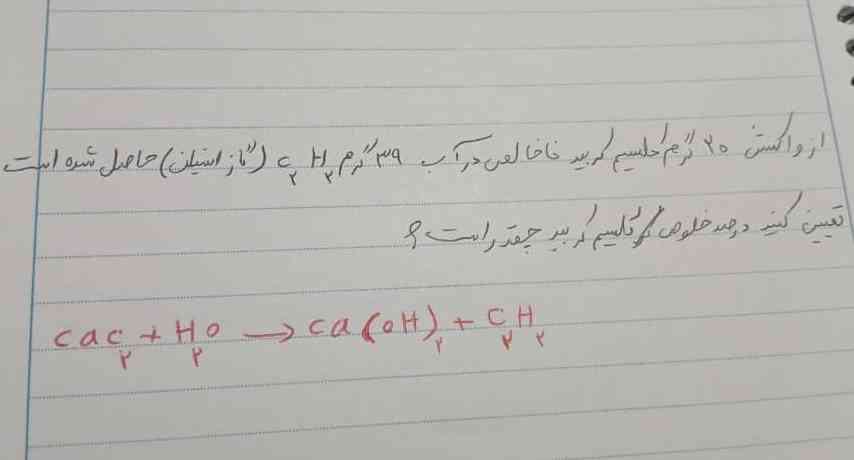 از واکنش ۲۰ گرم کلسیم کربید ناخالص در آب ۳۹ گرم C۲H۲ (گاز استیلن) حاصل شده است
تعیین کنید درصد خلوص کلسیم کربید چقدر است؟
cac۲ + H۲o → ca(oH)۲ + C۲H۲